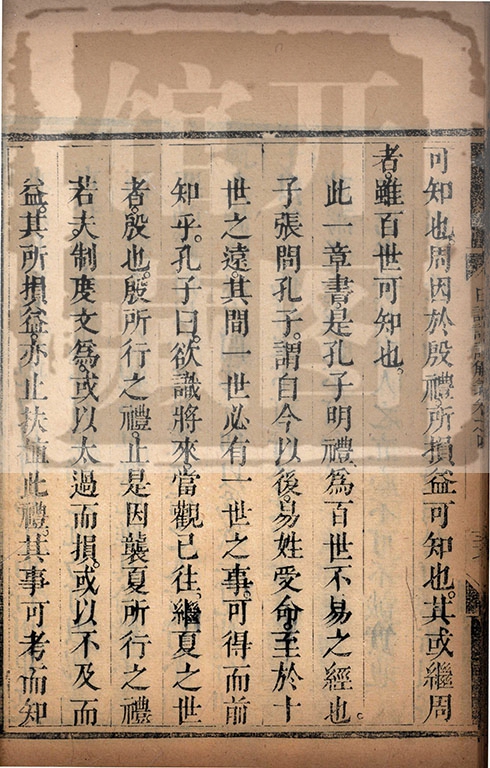 可知也。周因於殷禮。所損益可知也。其或繼周
者。雖百世可知也。
此一章書。是孔子明禮為百世不易之經也。
子張問孔子。謂自今以後。易姓受命。至於十
世之遠。其間一世必有一世之事。可得而前
知乎。孔子曰。欲識將來。當觀已往。繼夏之世
者。殷也。殷所行之禮。止是因襲夏所行之禮
若夫制度文為。或以太過而損。或以不及而
益。其所損益。亦止扶植此禮。其事可考而知